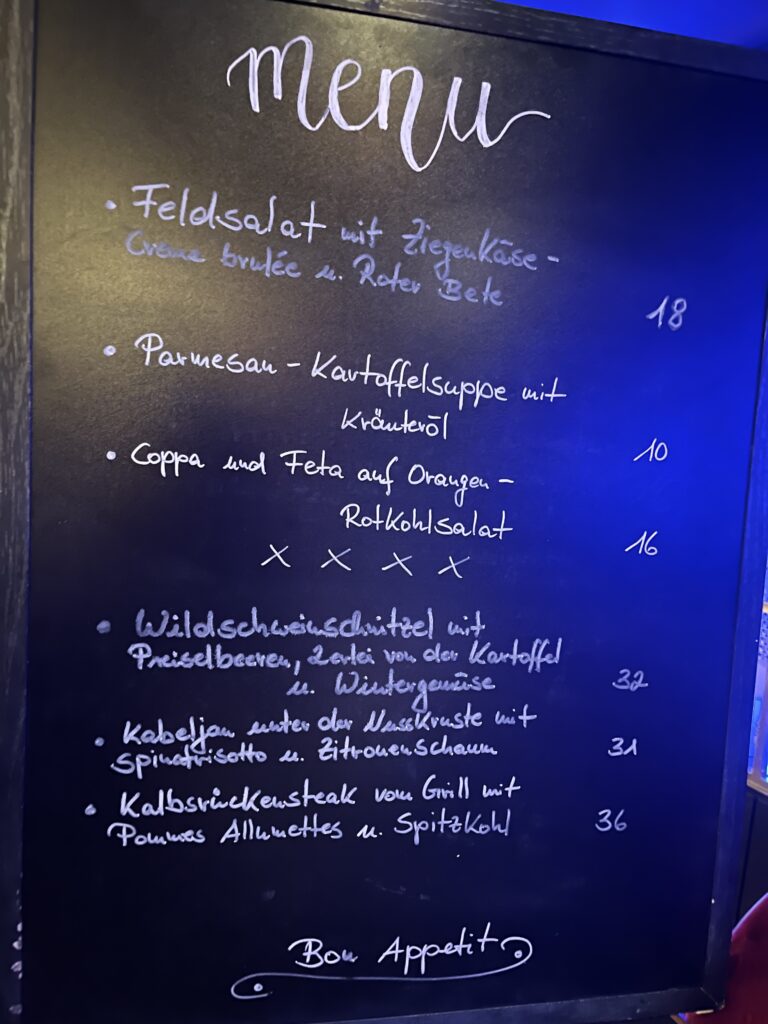 menu
• Feldsalat mit Ziegenkäse-
Creme brulée u. Roter Bete
18
• Parmesan-Kartoffelsuppe mit
Kräuteröl
10
• Coppa und Feta auf Orangen-
Rotkohlsalat
16
X X X X
• Wildschweinschnitzel mit
Preiselbeeren, 2erlei von der Kartoffel
u. Wintergemüse
32
• Kabeljau unter der Nusskruste mit
Spinatrisotto u. Zitronenschaum
31
• Kalbsrückensteak vom Grill mit
Pommes Allumettes u. Spitzkohl
36
Bon Appetit